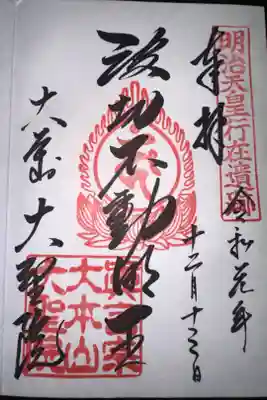 明治天皇行在遺蹟
奉拝
令和元年
十二月十三日
波切不動明王
大聖院
真言宗
大本山
大聖院